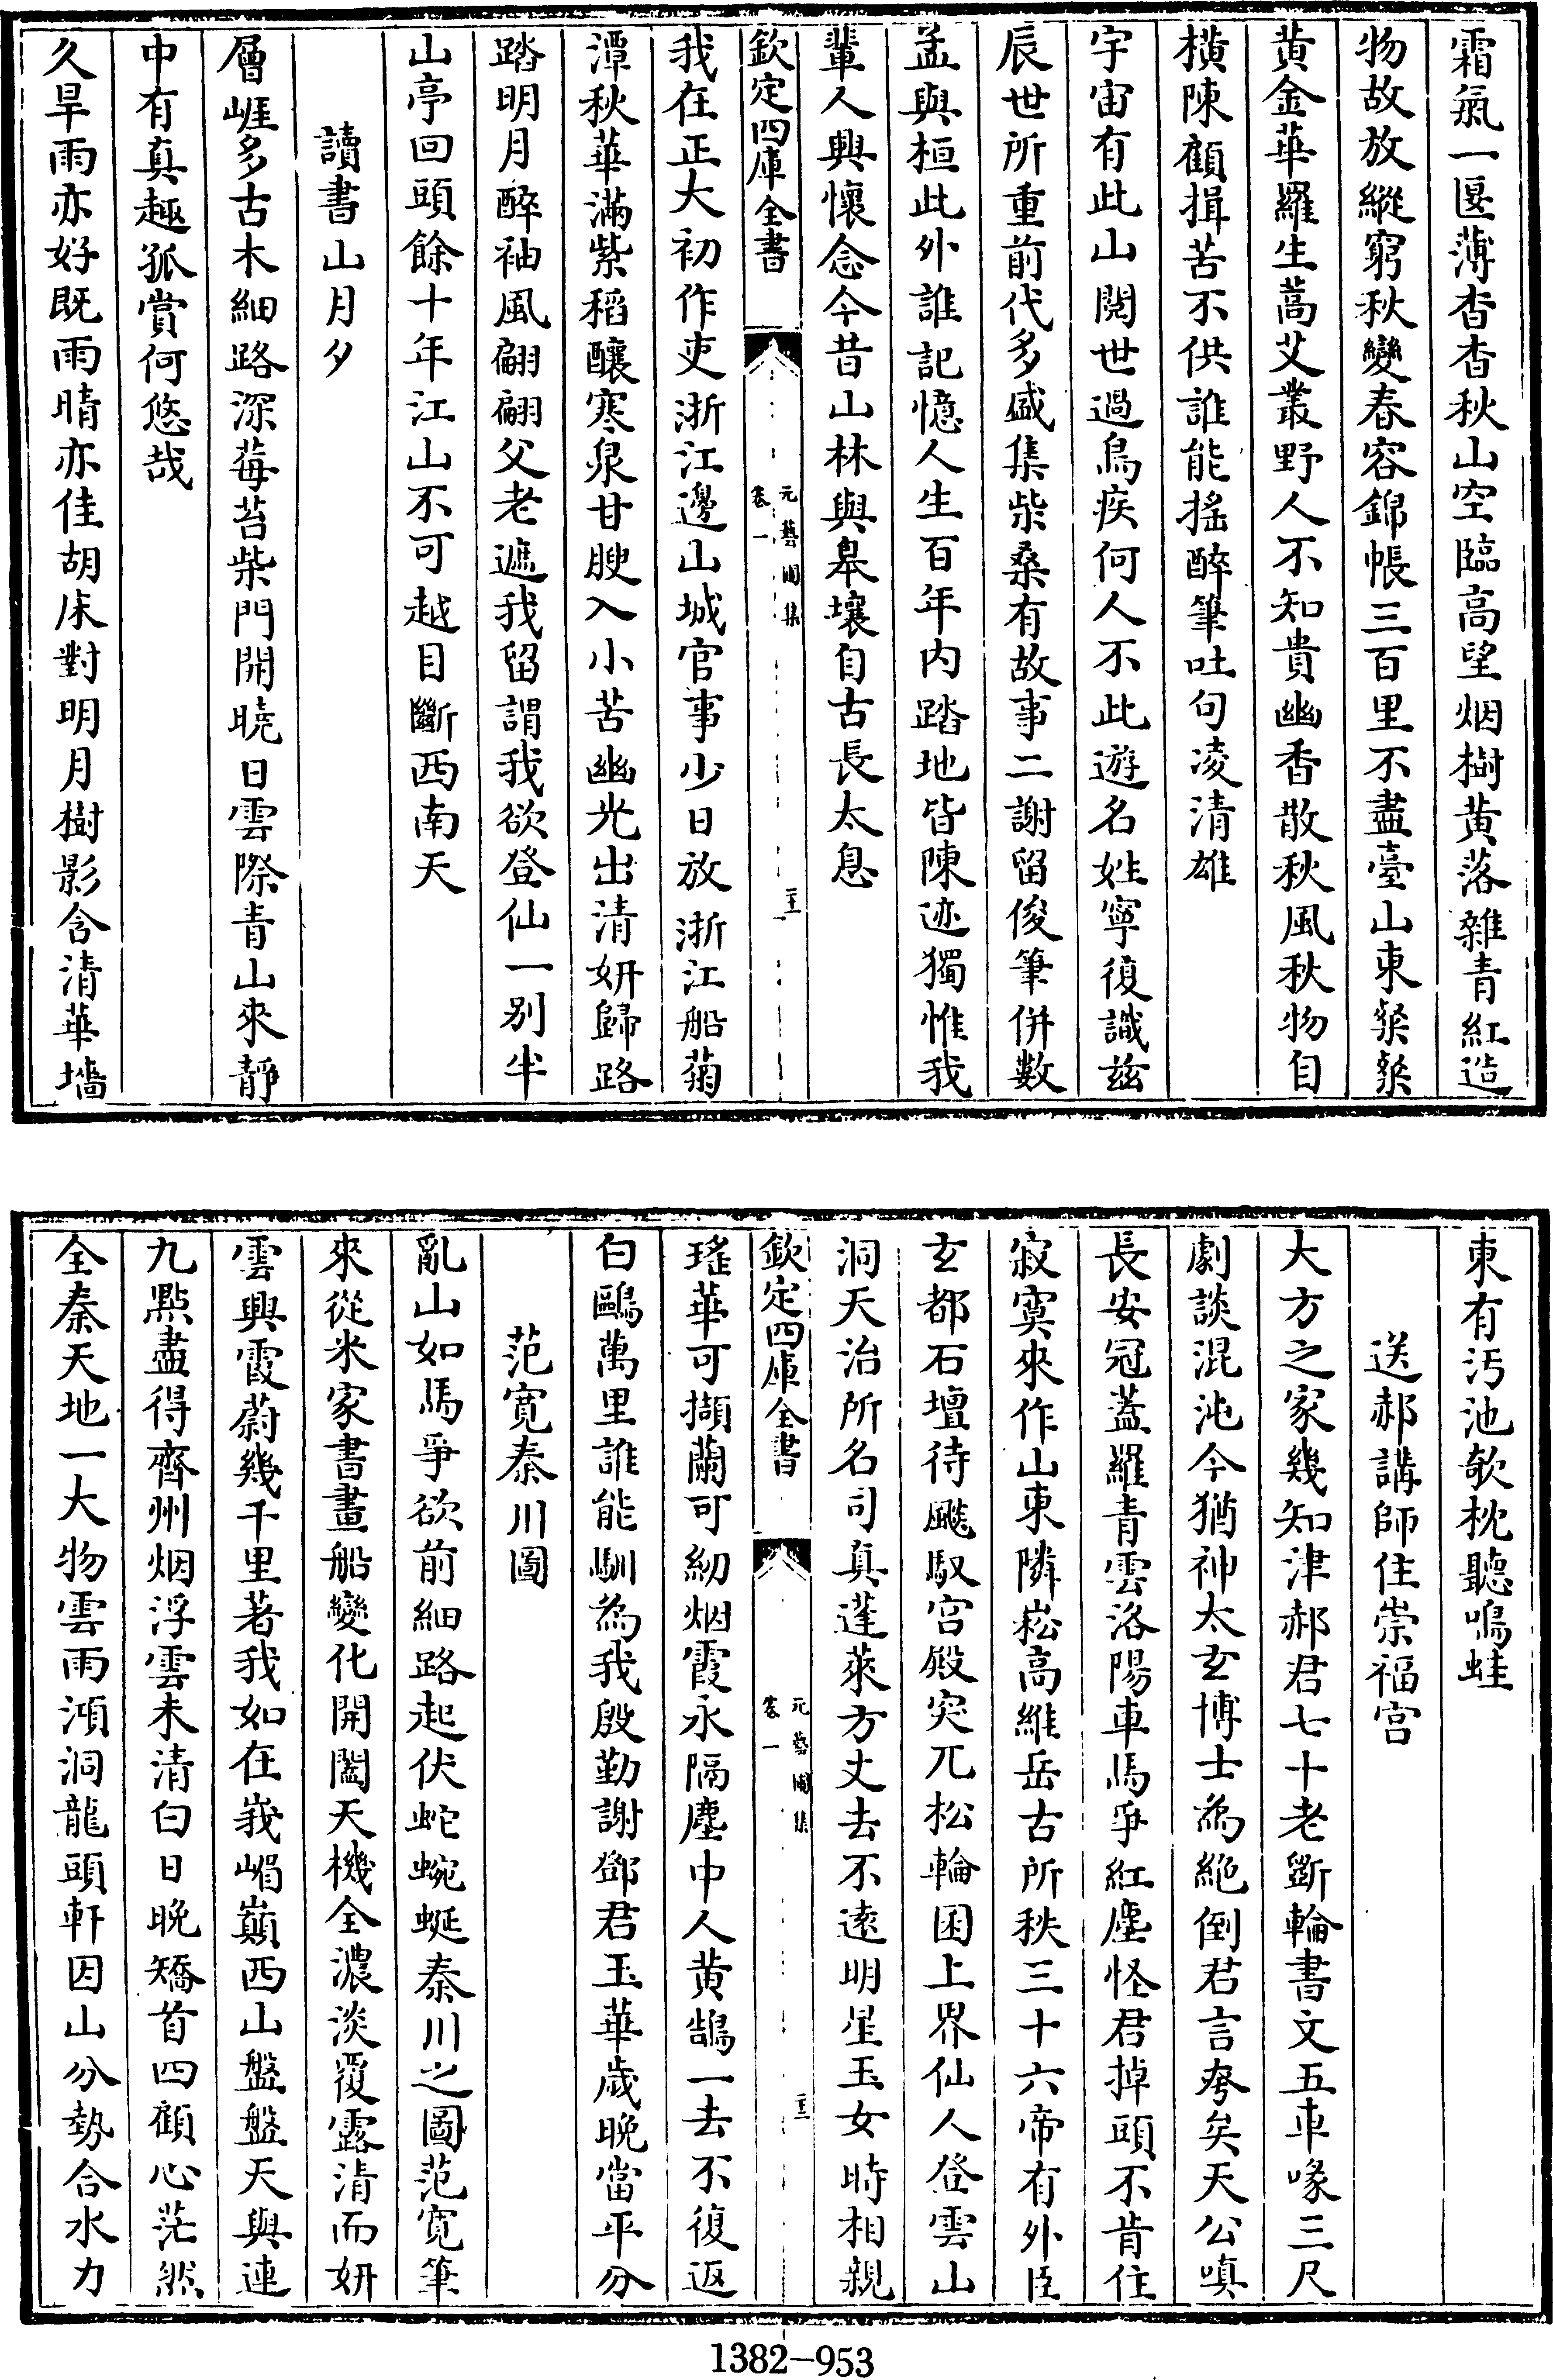 霜氣一匽薄杳杳秋山空臨高望烟樹黄落雜青紅造
物故放縱窮秋變春容錦帳三百里不盡臺山東粲粲
黄金華羅生蒿艾叢野人不知貴幽香散秋風秋物自
横陳顧揖苦不供誰能摇醉筆吐句凌清雄
宇宙有此山閱世過鳥疾何人不此遊名姓寧復識兹
辰世所重前代多盛集柴桑有故事二謝留俊筆併數
孟與桓此外誰記憶人生百年内踏地皆陳迹獨惟我
輩人興懷念今昔山林與皋壤自古長太息
欽定四庫全書
元藝圃集
卷一
我在正大初作吏浙江邊山城官事少日放浙江船菊
潭秋華滿紫稻釀寒泉甘腴入小苦幽光出清妍歸路
踏明月醉袖風翩翩父老遮我留謂我欲登仙一别半
山亭回頭餘十年江山不可越目斷西南天
讀書山月夕
層崕多古木細路深莓苔柴門開曉日雲際青山來靜
中有真趣孤賞何悠哉
久旱雨亦好既雨晴亦佳胡床對明月樹影含清華墻
東有汚池欹枕聽鳴蛙
送郝講師住崇福宫
大方之家幾知津郝君七十老斵輪書文五車喙三尺
劇談混沌今猶神太玄博士為絶倒君言夸矣天公嗔
長安冠蓋羅青雲洛陽車馬爭紅塵怪君掉頭不肯住
寂寞來作山東隣崧高維岳古所秩三十六帝有外臣
玄都石壇待飈馭宫殿突兀松輪囷上界仙人登雲山
洞天治所名司真蓬萊方丈去不遠明星玉女時相親
欽定四庫全書
元藝圃集
卷一
瑤華可擷蘭可紉烟霞永隔塵中人黄鵠一去不復返
白鷗萬里誰能馴為我殷勤謝鄧君玉華歲晚當平分
范寛秦川圖
亂山如馬爭欲前細路起伏蛇蜿蜒秦川之圖范寛筆
來從米家書畫船變化開闔天機全濃淡覆露清而妍
雲興霞蔚幾千里著我如在峩嵋巔西山盤盤天與連
九點盡得齊州烟浮雲未清白日晚矯首四顧心茫然
全秦天地一大物雲雨澒洞龍頭軒因山分勢合水力
1382-953